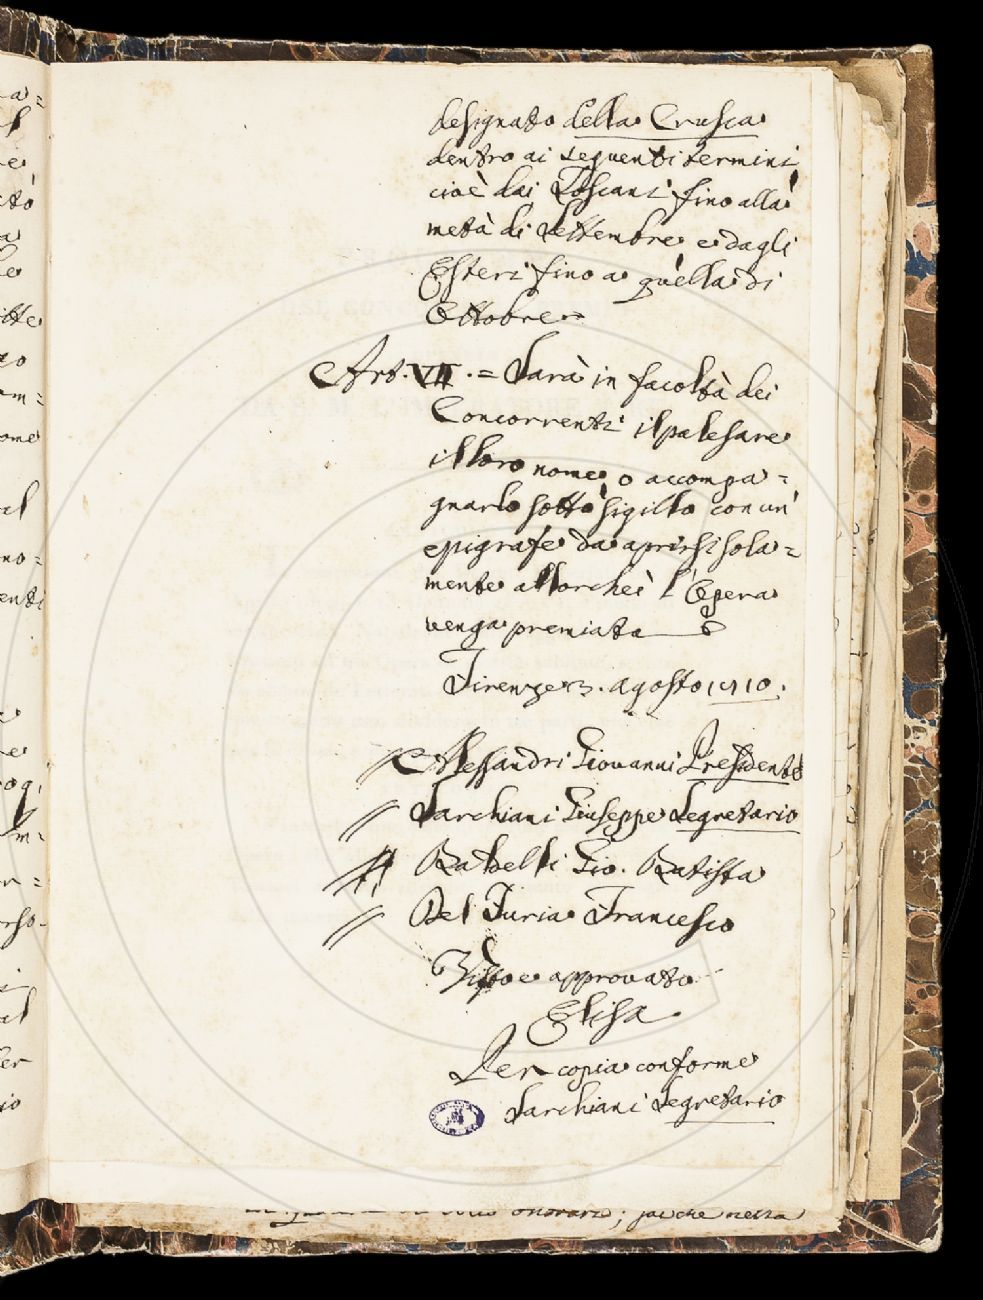 designato della Crusca
dentro ai seguenti termini
cioè dai Toscani fino alla
metà di Settembre e dagli
Esteri fino a quella di
Ottobre =
Art. VII. = Sarà in facoltà dei
Concorrenti il palesare
il loro nome o accompa =
gnarlo sotto sigillo con un
epigrafe da aprirsi sola =
mente allorchè l'Opera
venga premiata
Firenze 3. agosto 1810.
Alessandri Giovanni Presidente
Sarchiani Giuseppe Segretario
Batelli Gio. Batista
Del Furia Francesco
Visto e approvato
Elisa
Per copia conforme
Sarchiani Segretario
onorari; poiche nella